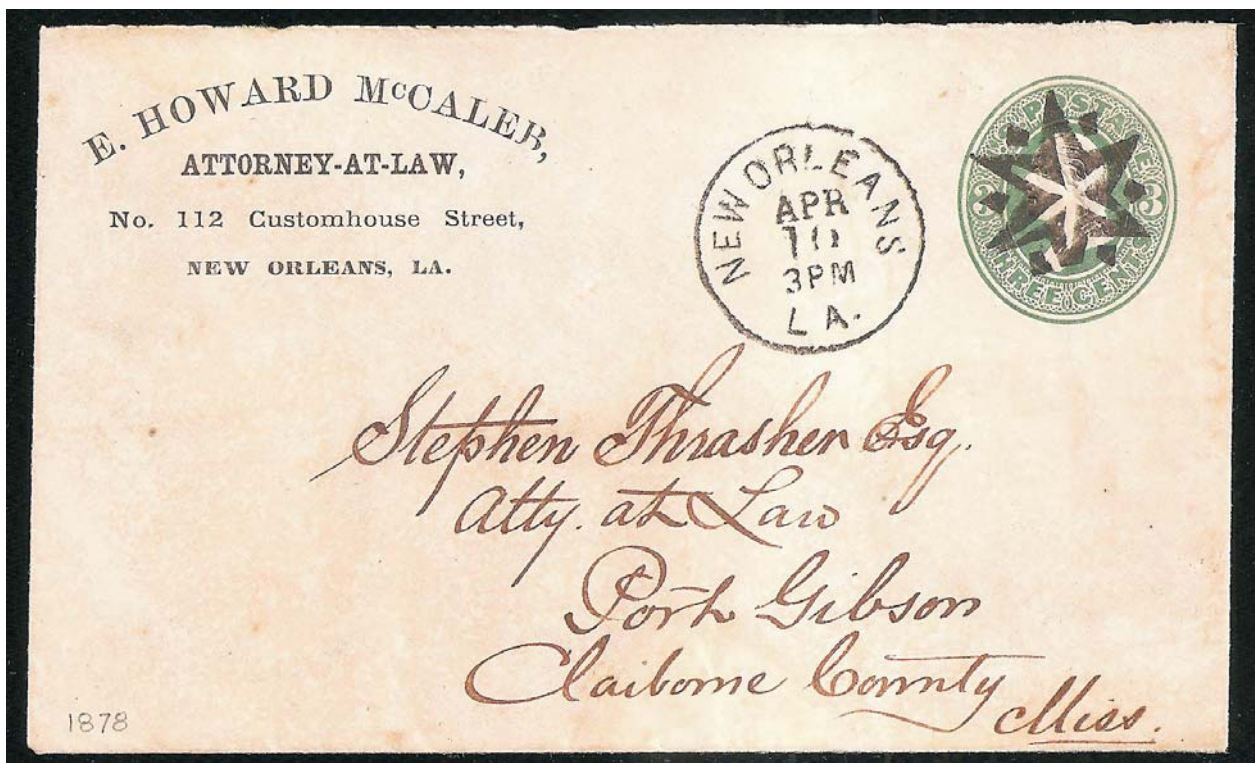 E. HOWARD McCALEB,
ATTORNEY-AT-LAW,
No. 112 Customhouse Street,
NEW ORLEANS, LA.
NEW ORLEANS
APR
10
3PM
LA.
U.S. POSTAGE
3 3
THREE CENTS
Stephen Thrasher Esq.
Atty. at Law
Port Gibson
Claiborne County
Miss.
1878